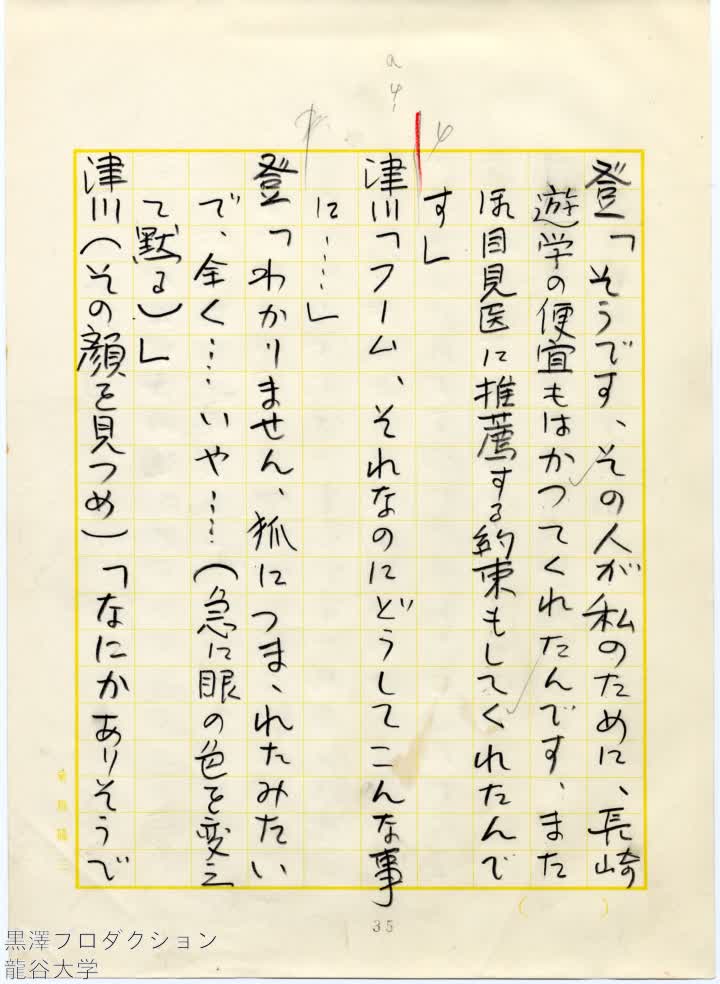 登「そうです、その人が私のために、長崎
遊学の便宜もはかつてくれたんです、また
御目見医に推薦する約束もしてくれたんで
す」
津川「フーム、それなのにどうしてこんな事
に……」
登「わかりません、狐につまゝれたみたい
で、全く……いや……(急に眼の色を変え
て黙る)」
津川(その顔を見つめ)「なにかありそうで
35
黒澤プロダクション
龍谷大学